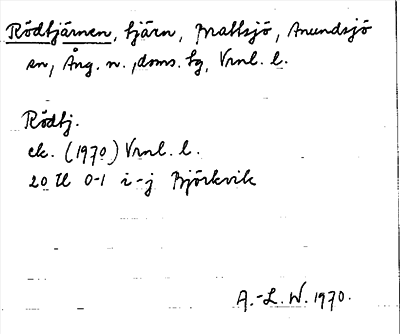 Rödtjärnen, tjärn, Mattsjö, Anundsjö
sn, Ång. n., doms. tg, Vrnl. l.
Rödtj.
ek. (1970) Vrnl. l.
20 H 0-1 i-j Björkvik
A.-L. W. 1970.